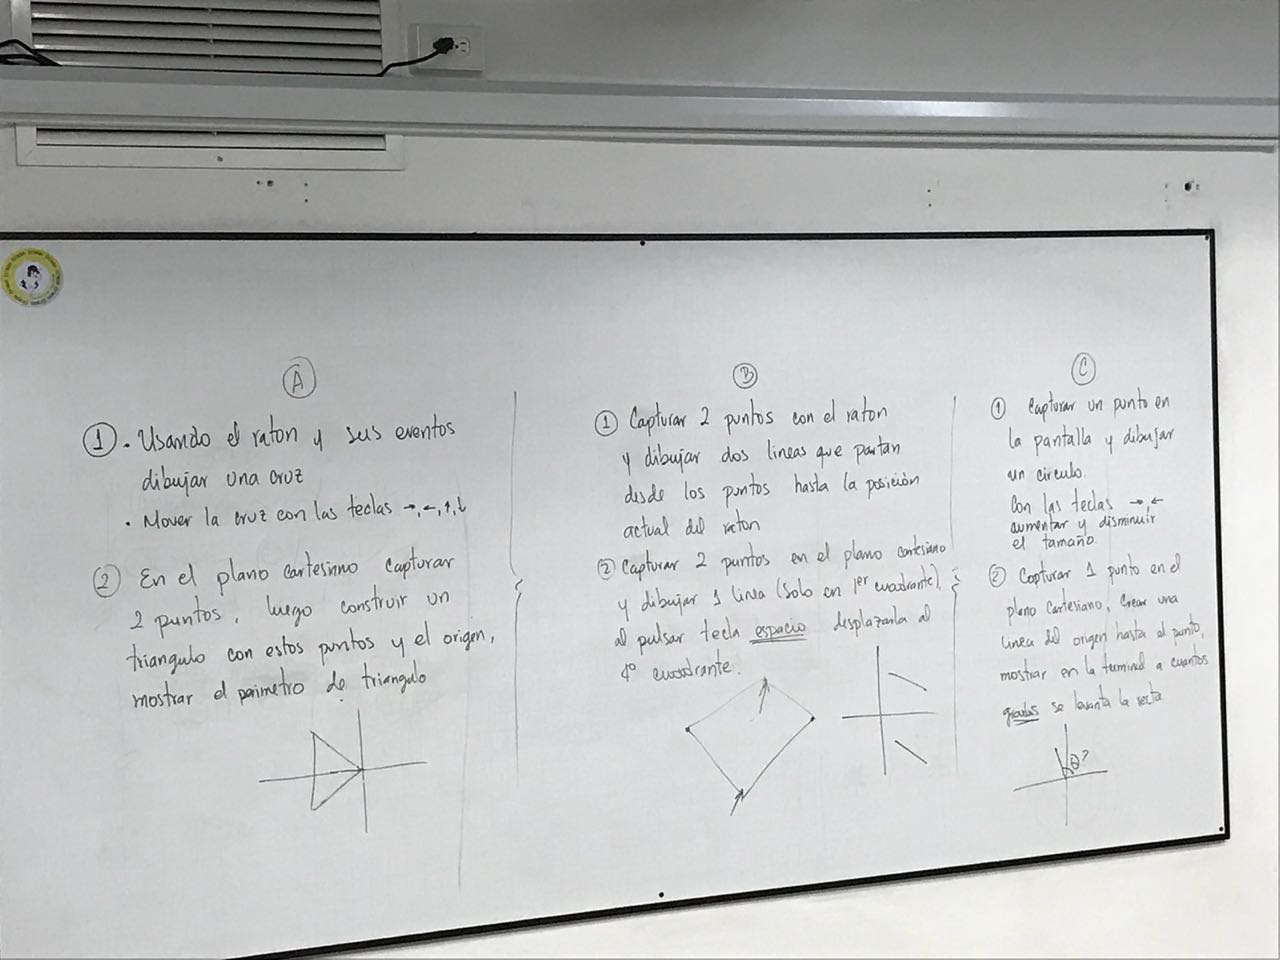 A
1 • Usando el raton y sus eventos
dibujar una cruz
• Mover la cruz con las teclas →, ←, ↑, ↓
2 En el plano cartesiano capturar
2 puntos, luego construir un
triangulo con estos puntos y el origen,
mostrar el perimetro de triangulo
B
1 Capturar 2 puntos con el raton
y dibujar dos lineas que partan
desde los puntos hasta la posición
actual del raton
2 Capturar 2 puntos en el plano cartesiano
y dibujar 1 linea (Solo en 1er cuadrante),
al pulsar tecla espacio desplazarla al
4º cuadrante.
C
1 Capturar un punto en
la pantalla y dibujar
un circulo.
Con las teclas →, ←
aumentar y disminuir
el tamaño
2 Capturar 1 punto en el
plano cartesiano, crear una
linea del origen hasta el punto,
mostrar en la terminal a cuantos
grados se levanta la recta
θ?